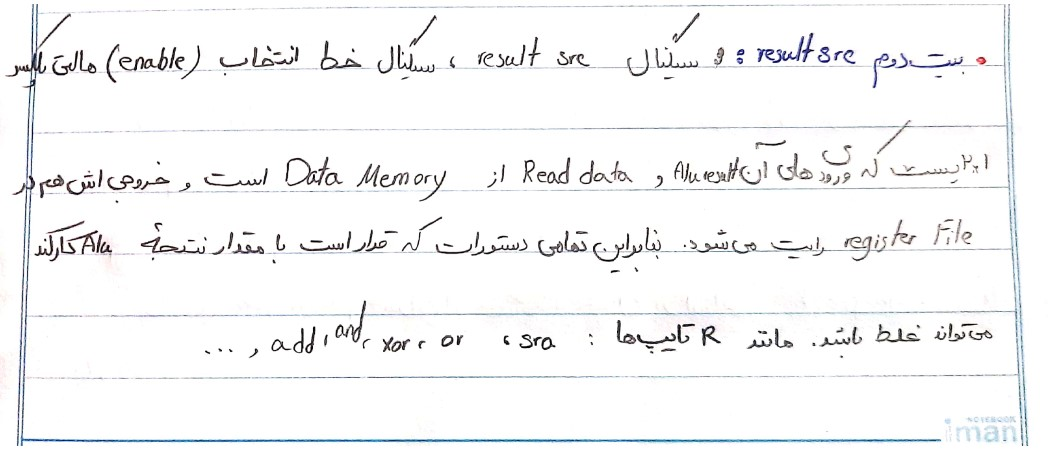 • بیت دوم result src : و سیگنال result src ، سیگنال خط انتخاب (enable) مالتی پلکسر
۲×۱ یست که ورودی های آن Alu result و Read data از Data Memory است و خروجی اش هم در
register File رایت می شود. بنابراین تمامی دستورات که قرار است با مقدار نتیجهٔ Alu کار کند
می تواند غلط باشد. مانند R تایپ ها : sra ، or ، xor ، and ، add و ...
NOTEBOOK
iman